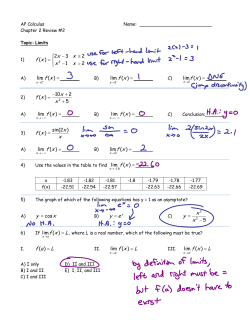 AP Calculus Name:
Chapter 2 Review #2
Topic: Limits
1) f(x) = { 2x - 3 x ≥ 2 use for left-hand limit 2(2)-3=1
x² - 1 x ≥ 2 use for right-hand limit 2²-1=3
A) lim f(x) = 3 B) lim f(x) = 1 C) lim f(x) = DNE
(jump discontinuity)
2) f(x) = -10x + 2 / x² - 5
A) lim f(x) = 0 B) lim f(x) = 0 C) Conclusion: H.A.: y=0
3) f(x) = sin(2x) / x lim sin = 0 lim 2(sin2x) / 2x = 2·1
A) lim f(x) = 0 B) lim f(x) = 2
4) Use the values in the table to find lim f(x) = -22.60
x -1.83 -1.82 -1.81 -1.8 -1.79 -1.78 -1.77
f(x) -22.51 -22.54 -22.57 -22.63 -22.66 -22.69
5) The graph of which of the following equations has y = 1 as an asymptote?
lim eˣ = 0
A) y = cos x B) y = eˣ C) y = x² / x² - 5
No H.A. H.A.: y=0
6) If lim f(x) = L, where L is a real number, which of the following must be true?
I. f(a) = L II. lim f(x) = L III. lim f(x) = L
A) I only D) II and III
B) I and II E) I, II, and III
C) I and III
by definition of limits,
left and right must be =
but f(a) doesn't have to
exist